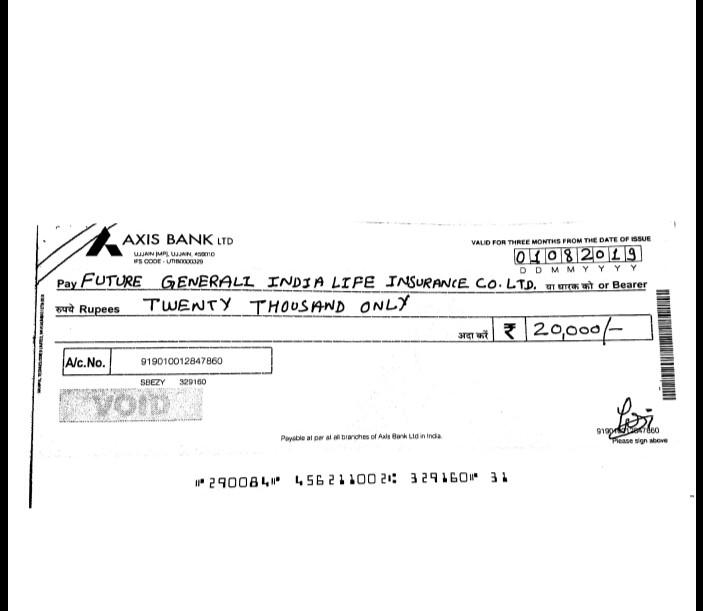 AXIS BANK LTD
UJJAIN [MP], UJJAIN, 456010
IFS CODE - UTIB0000329
VALID FOR THREE MONTHS FROM THE DATE OF ISSUE
01082019
D D M M Y Y Y Y
Pay FUTURE GENERALI INDIA LIFE INSURANCE CO. LTD. या धारक को or Bearer
रुपये Rupees TWENTY THOUSAND ONLY
अदा करें ₹ 20,000/-
A/c.No. 919010012847860
SBEZY 329160
VOID
Payable at par at all branches of Axis Bank Ltd in India.
919010012847860
Please sign above
⑈290084⑈ 456211002⑆ 329160⑈ 31